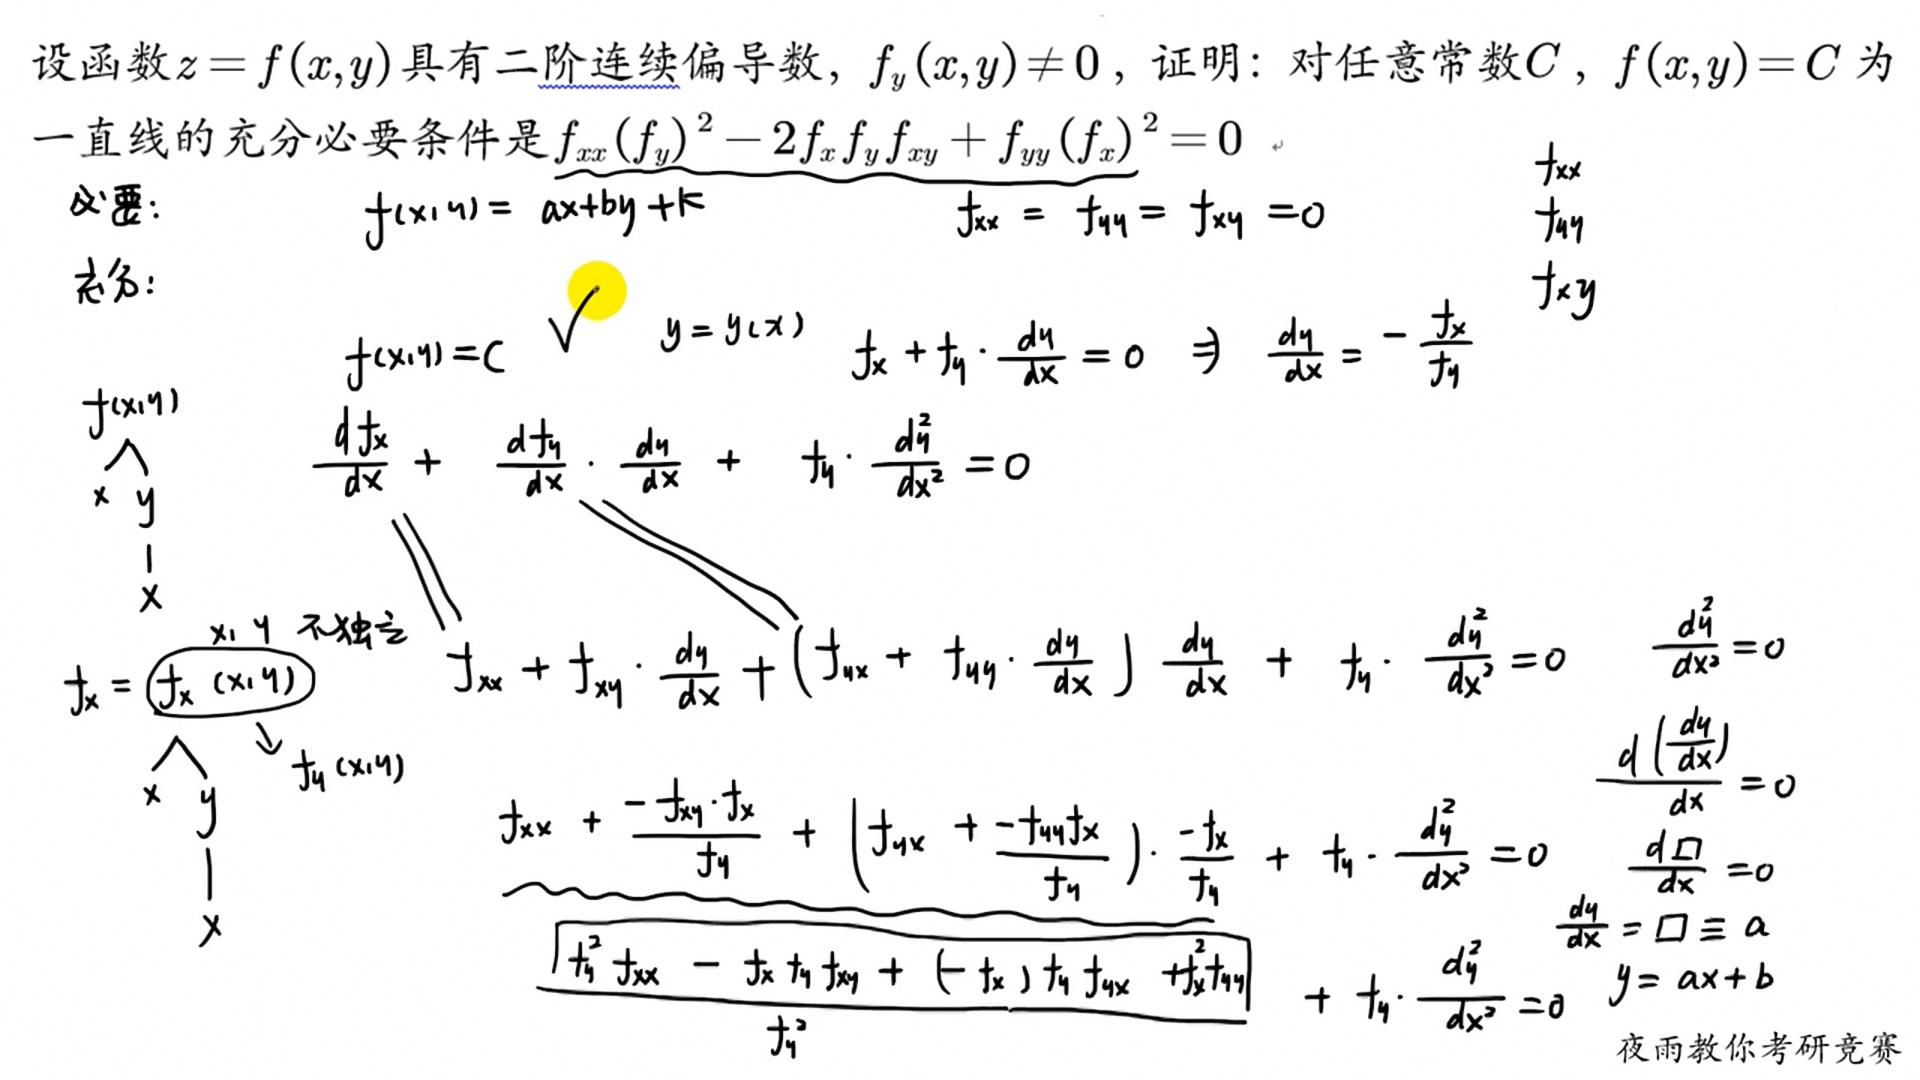 设函数z=f(x,y)具有二阶连续偏导数，f_y(x,y)≠0，证明：对任意常数C，f(x,y)=C 为
一直线的充分必要条件是f_{xx}(f_y)^2-2f_xf_yf_{xy}+f_{yy}(f_x)^2=0
必要： f(x,y)= ax+by+k f_{xx} = f_{yy} = f_{xy} =0
f_{xx}
f_{yy}
f_{xy}
充分：
f(x,y)=C ✓ y=y(x) f_x + f_y · \frac{dy}{dx} = 0 ⇒ \frac{dy}{dx} = -\frac{f_x}{f_y}
f(x,y)
x y
x
\frac{df_x}{dx} + \frac{df_y}{dx} · \frac{dy}{dx} + f_y · \frac{d^2y}{dx^2} = 0
x, y 不独立
f_x = f_x (x,y)
f_y (x,y)
x y
x
f_{xx} + f_{xy} · \frac{dy}{dx} + (f_{yx} + f_{yy} · \frac{dy}{dx}) \frac{dy}{dx} + f_y · \frac{d^2y}{dx^2} = 0
f_{xx} + \frac{-f_{xy}·f_x}{f_y} + (f_{yx} + \frac{-f_{yy}f_x}{f_y}) · \frac{-f_x}{f_y} + f_y · \frac{d^2y}{dx^2} = 0
\frac{f_y^2 f_{xx} - f_x f_y f_{xy} + (-f_x) f_y f_{yx} + f_x^2 f_{yy}}{f_y^2} + f_y · \frac{d^2y}{dx^2} = 0
\frac{d^2y}{dx^2} = 0
\frac{d(\frac{dy}{dx})}{dx} = 0
\frac{d□}{dx} = 0
\frac{dy}{dx} = □ ≡ a
y = ax+b
夜雨教你考研竞赛